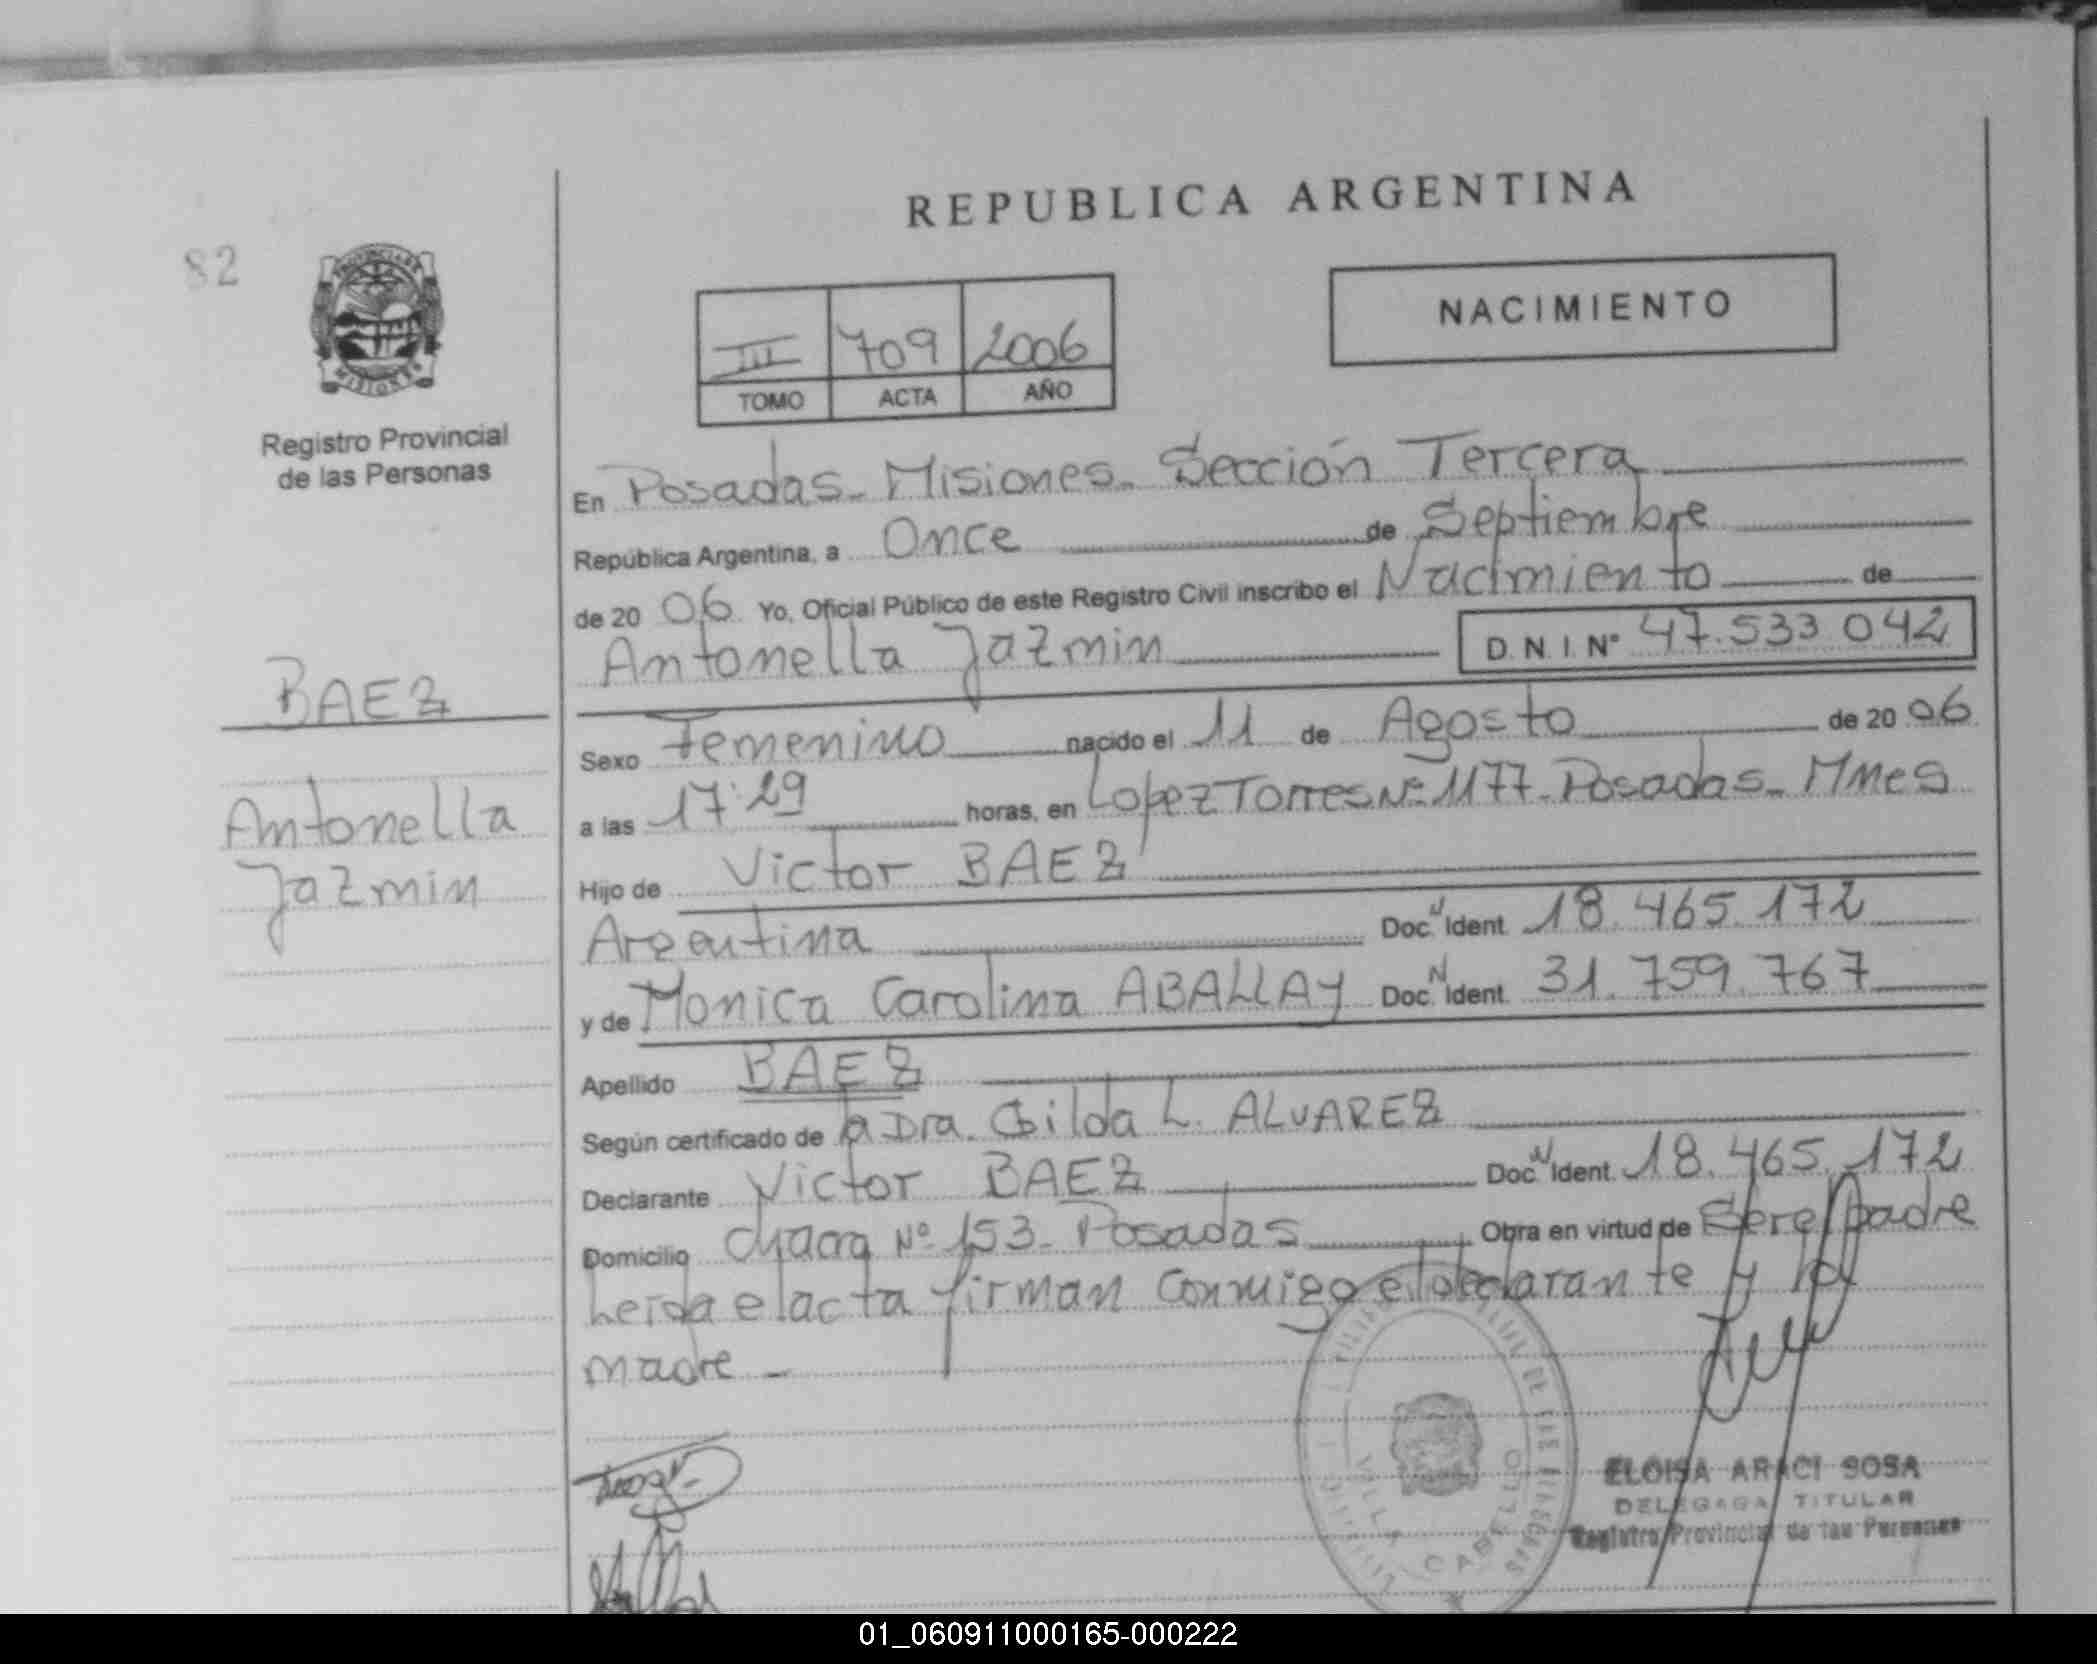 REPUBLICA ARGENTINA
82
PROVINCIA
MISIONES
Registro Provincial
de las Personas
III 709 2006
TOMO ACTA AÑO
NACIMIENTO
En Posadas - Misiones - Sección Tercera
República Argentina, a Once de Septiembre
de 20 06 Yo, Oficial Público de este Registro Civil inscribo el Nacimiento de
Antonella Jazmin D.N.I. Nº 47.533 042
BAEZ
Antonella
Jazmin
Sexo Femenino nacido el 11 de Agosto de 20 06
a las 17:29 horas, en Lopez Torres Nº 1177 - Posadas - Mnes
Hijo de Victor BAEZ
Argentina Doc. N Ident. 18.465.172
y de Monica Carolina ABALLAY Doc. N Ident. 31.759.767
Apellido BAEZ
Según certificado de la Dra. Gilda L. ALVAREZ
Declarante Victor BAEZ Doc. N Ident. 18.465.172
Domicilio chacra Nº 153 - Posadas Obra en virtud de Ser el padre
Leida el acta firman conmigo el declarante y la
madre -
VILLA CABELLO
ELOISA ARACI SOSA
DELEGADA TITULAR
Registro Provincial de las Personas
01_060911000165-000222